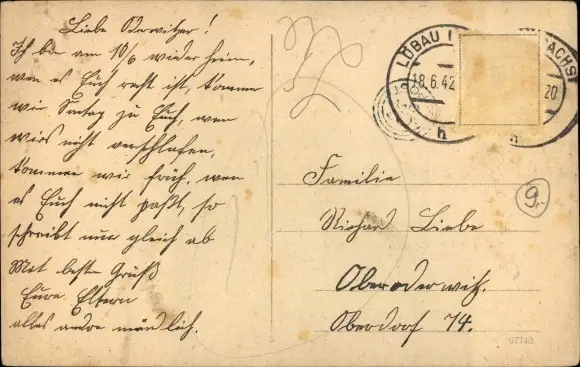 Liebe Oderwitzer!
Ich bin am 10/6 wieder heim,
wen es Euch recht ist, kommen
wir Sontag zu Euch, wen
wirs nicht verschlafen,
kommen wir früh, wen
es Euch nicht paßt, so
schreibt nur gleich ab
Mit besten Gruß
Eure Eltern
alles andre mündlich.
LÖBAU
SACHS
18.6.42
20
h
h
Familie
Richard Liebe
Oberoderwitz
Oberdorf 74.
9.-
97740